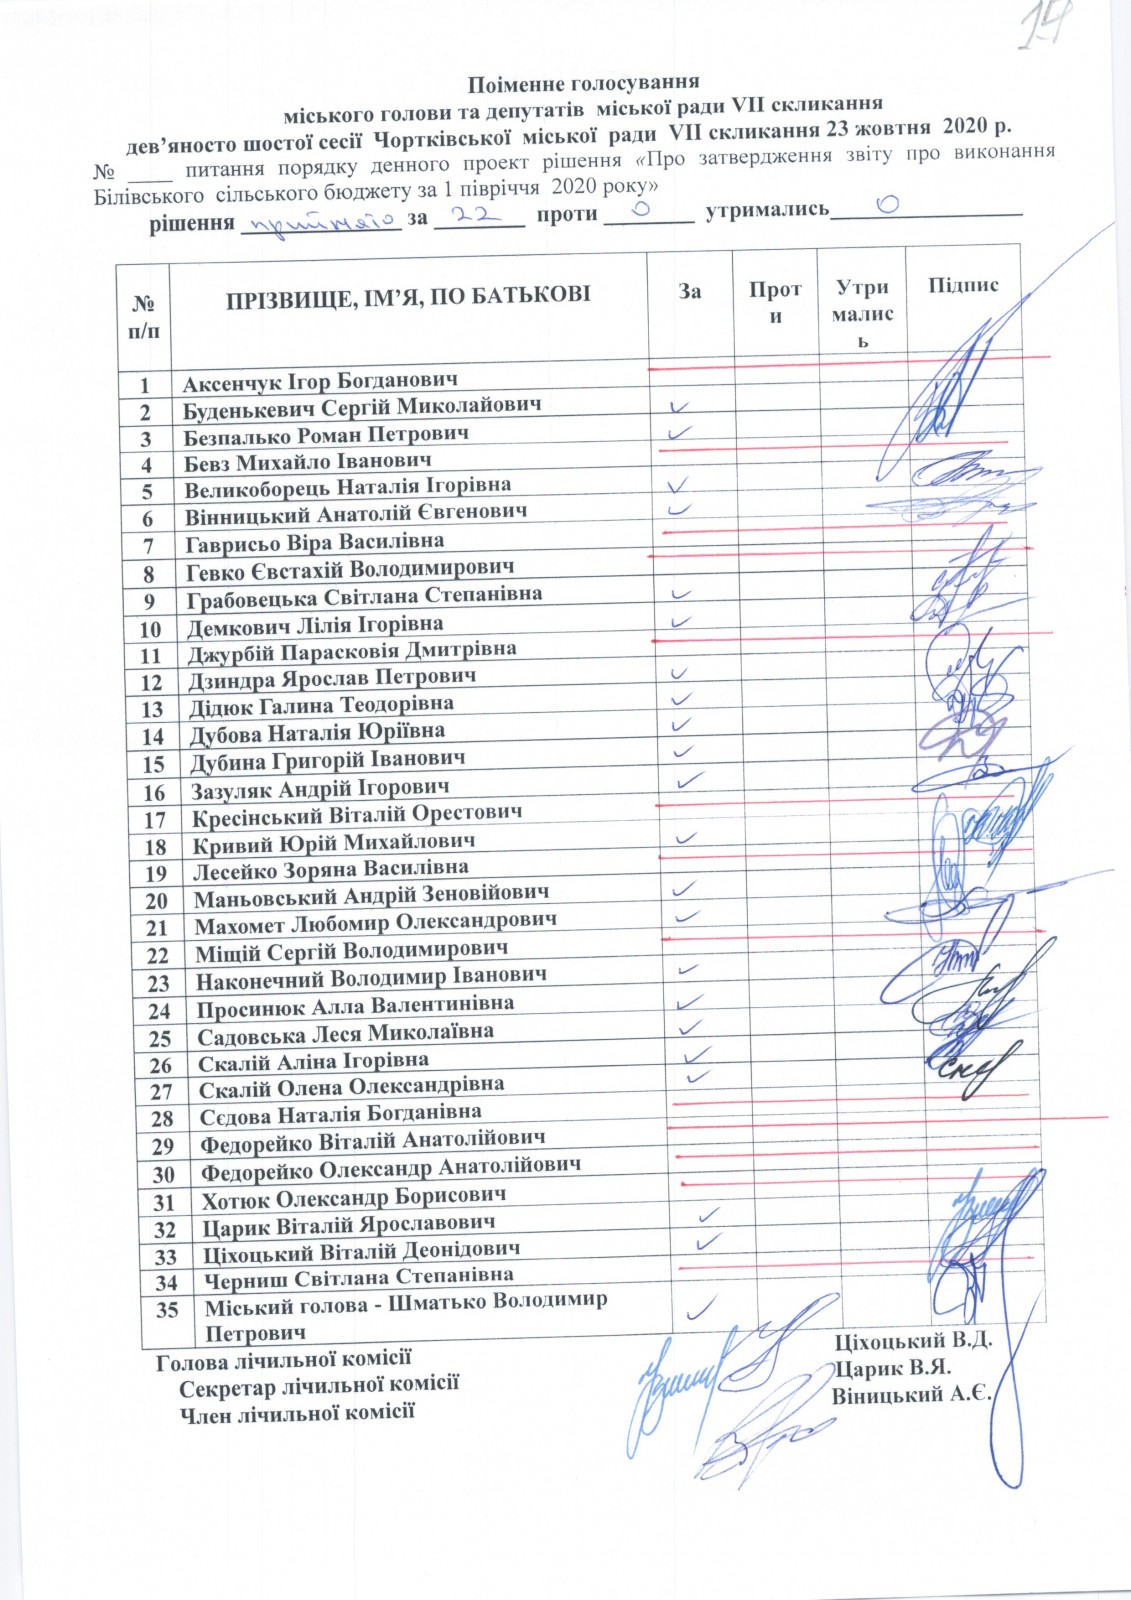 14
Поіменне голосування
міського голови та депутатів міської ради VII скликання
дев’яносто шостої сесії Чортківської міської ради VII скликання 23 жовтня 2020 р.
№ ____ питання порядку денного проект рішення «Про затвердження звіту про виконання
Білівського сільського бюджету за 1 півріччя 2020 року»
рішення прийнято за 22 проти 0 утримались 0
№ п/п ПРІЗВИЩЕ, ІМ’Я, ПО БАТЬКОВІ За Проти Утрималис ь Підпис
1 Аксенчук Ігор Богданович
2 Буденькевич Сергій Миколайович ✓
3 Безпалько Роман Петрович ✓
4 Бевз Михайло Іванович
5 Великоборець Наталія Ігорівна ✓
6 Вінницький Анатолій Євгенович ✓
7 Гаврисьо Віра Василівна
8 Гевко Євстахій Володимирович
9 Грабовецька Світлана Степанівна ✓
10 Демкович Лілія Ігорівна ✓
11 Джурбій Парасковія Дмитрівна
12 Дзиндра Ярослав Петрович ✓
13 Дідюк Галина Теодорівна ✓
14 Дубова Наталія Юріївна ✓
15 Дубина Григорій Іванович ✓
16 Зазуляк Андрій Ігорович ✓
17 Кресінський Віталій Орестович
18 Кривий Юрій Михайлович ✓
19 Лесейко Зоряна Василівна
20 Маньовський Андрій Зеновійович ✓
21 Махомет Любомир Олександрович ✓
22 Міщій Сергій Володимирович
23 Наконечний Володимир Іванович ✓
24 Просинюк Алла Валентинівна ✓
25 Садовська Леся Миколаївна ✓
26 Скалій Аліна Ігорівна ✓
27 Скалій Олена Олександрівна ✓
28 Сєдова Наталія Богданівна
29 Федорейко Віталій Анатолійович
30 Федорейко Олександр Анатолійович
31 Хотюк Олександр Борисович
32 Царик Віталій Ярославович ✓
33 Ціхоцький Віталій Деонідович ✓
34 Черниш Світлана Степанівна
35 Міський голова - Шматько Володимир ✓
Петрович
Голова лічильної комісії Ціхоцький В.Д.
Секретар лічильної комісії Царик В.Я.
Член лічильної комісії Віницький А.Є.